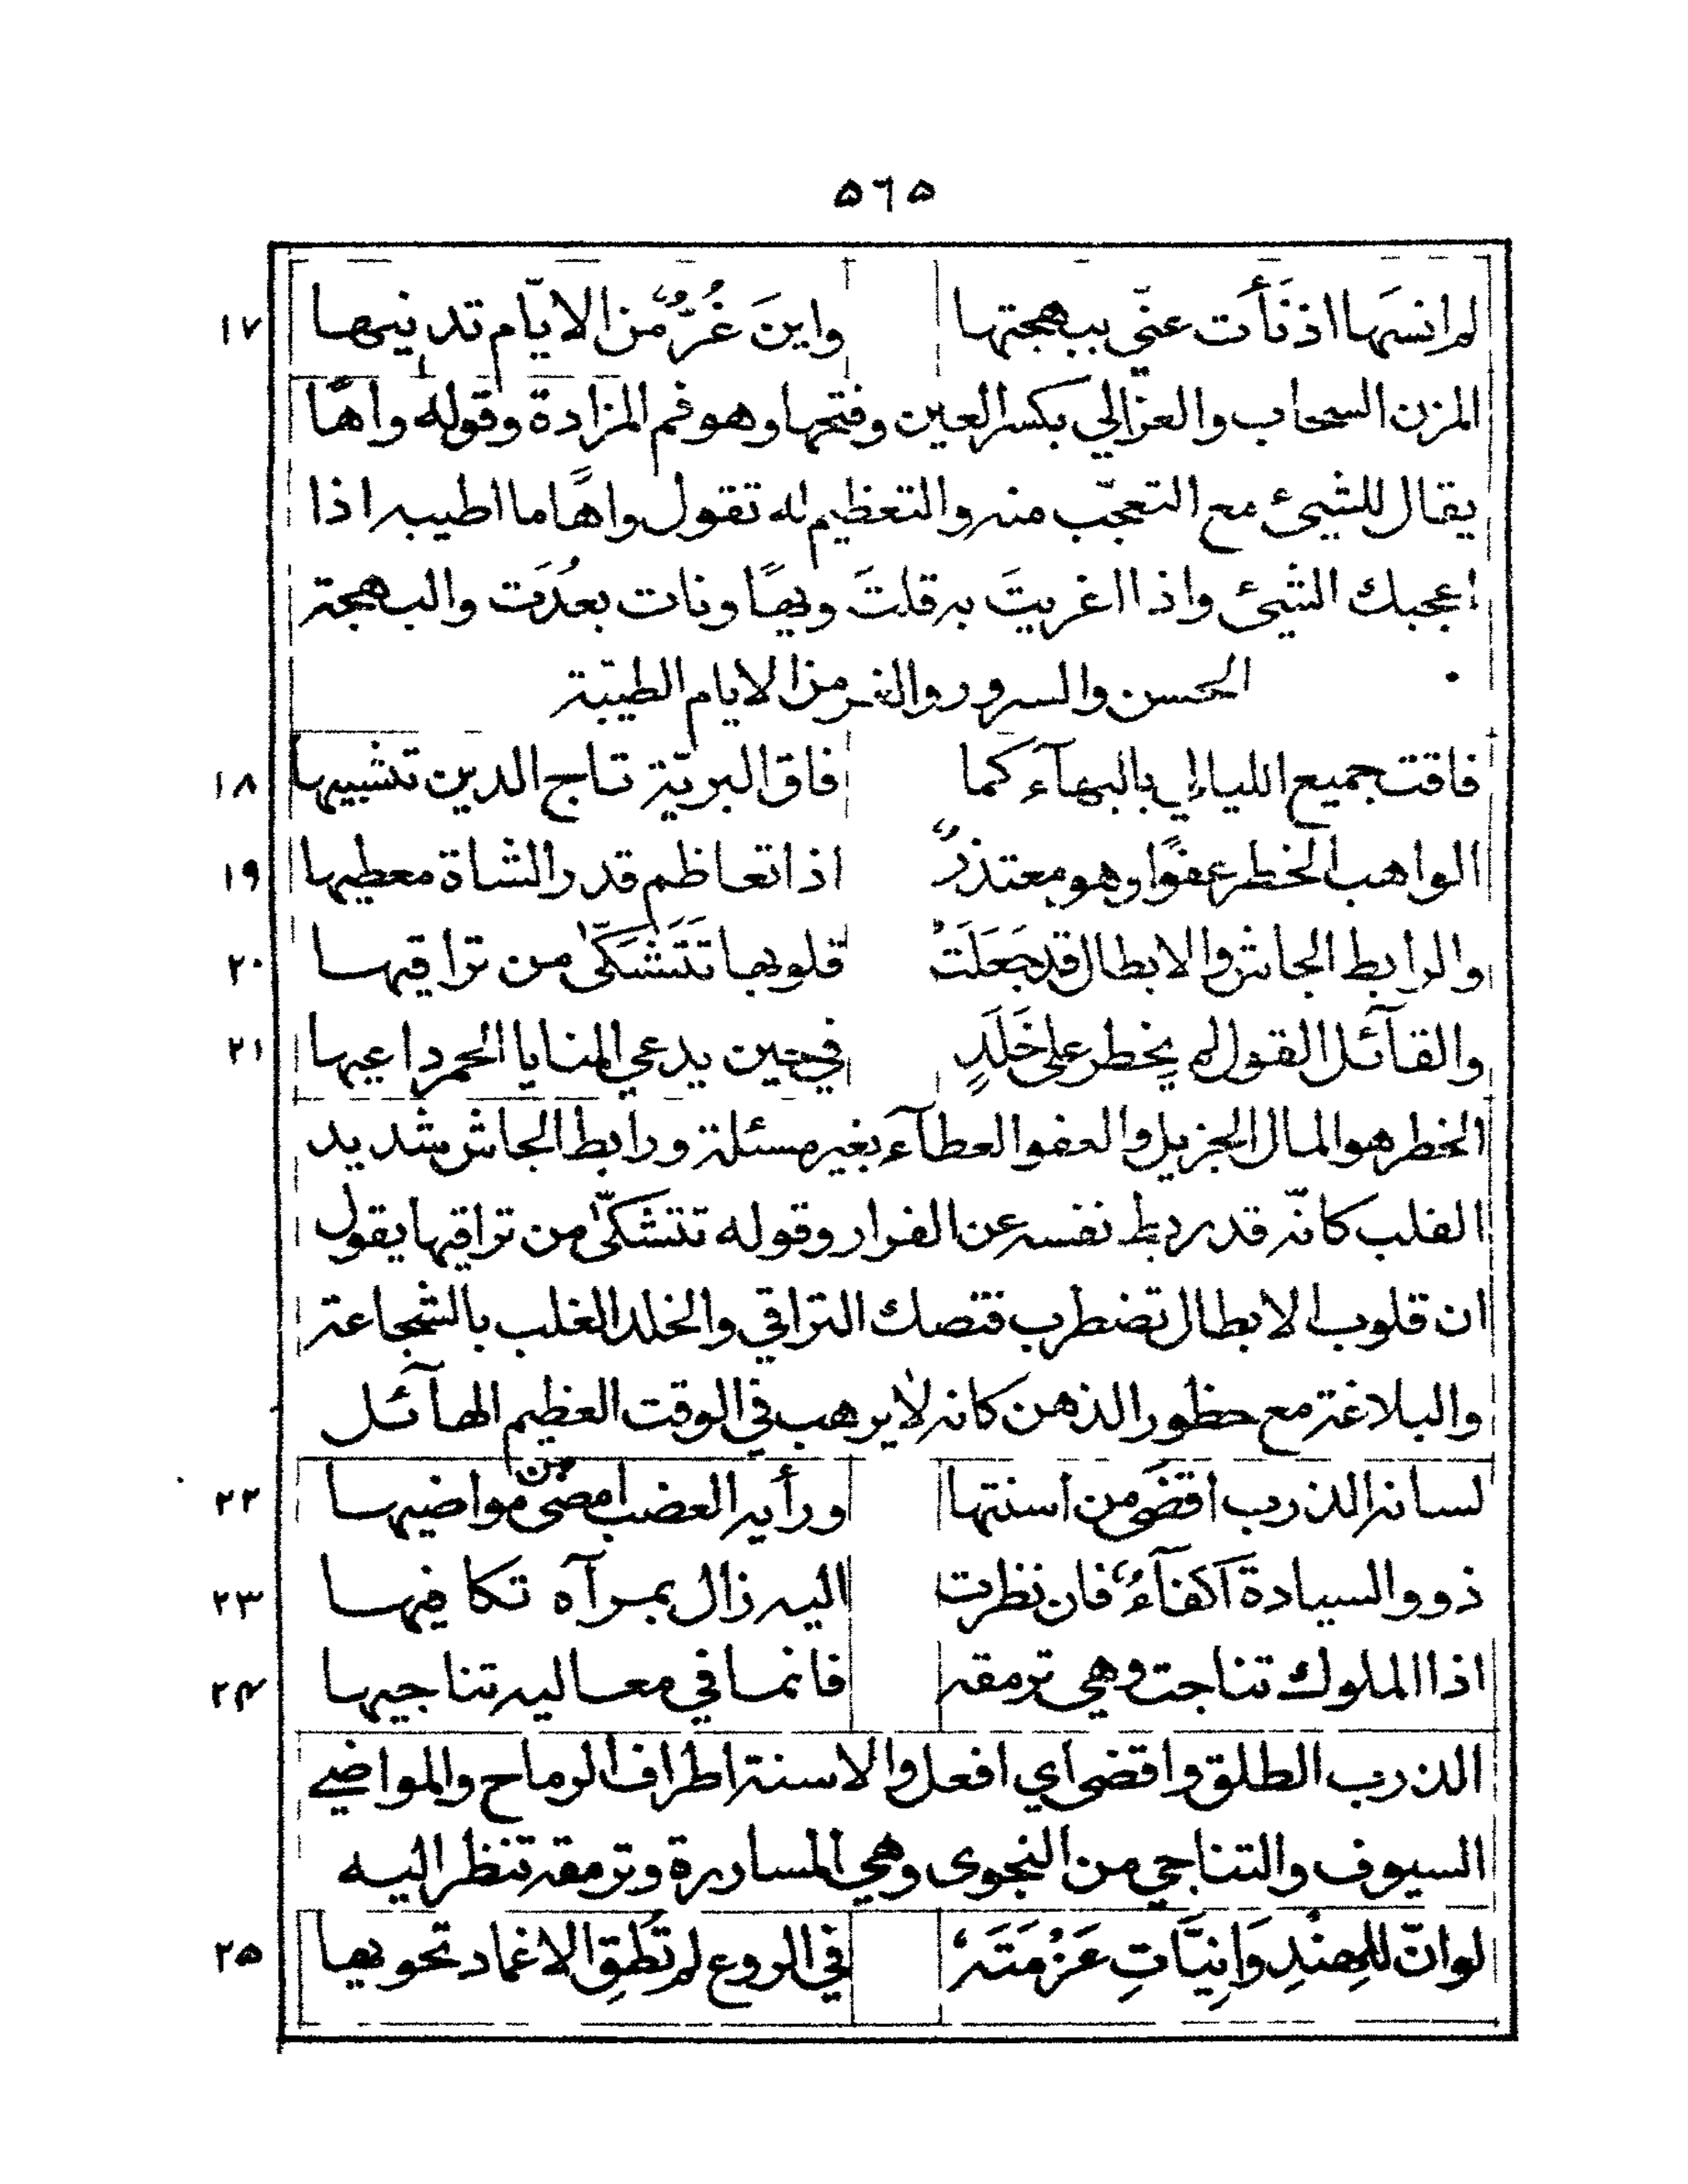 ٥٦٥
لم انسَها اذ نَأَت عنّي ببهجتها واينَ غُرٌّ من الايّام تدنيها ١٧
المزن السحاب والعزالي بكسر العين وفتحها وهو فم المزادة وقوله واهًا
يقال للشيئ مع التعجّب منه والتعظيم له تقول واهًا ما اطيبه اذا
اعجبك الشيئ واذا اغريتَ به قلتَ ويهًا ونات بعدَت والبهجة
الحسن والسرور والغر من الايام الطيبة
فاقت جميع الليالي بالبهآء كما فاق البريّة تاج الدين تشبيها ١٨
الواهب الخطر عفوًا وهو معتذرٌ اذا تعاظم قدر الشاة معطيها ١٩
والرابط الجاش والابطال قد جَعَلَتْ قلوبها تَتَشَكّى من تراقيها ٢٠
والقآئل القول لم يخطر على خَلَدٍ في حين يدعي المنايا الحمر داعيها ٢١
الخطر هو المال الجزيل والعفو العطآء بغير مسئلة ورابط الجاش شديد
القلب كانّه قد ربط نفسه عن الفرار وقوله تتشكّى من تراقيها يقول
ان قلوب الابطال تضطرب فتصك التراقي والخلد الغلب بالشجاعة
والبلاغة مع حظور الذهن كانه لا يرهب في الوقت العظيم الهآئل
لسانه الذرب اقضَى من اسنتها ورأيه العضب امضى من مواضيها ٢٢
ذوو السيادة اكفآءٌ فان نظرت اليه زال بمرآه تكافيها ٢٣
اذا الملوك تناجت وهي ترمقه فانما في معاليه تناجيها ٢٤
الذرب الطلق واقضى اي افعل والاسنة اطراف الرماح والمواضي
السيوف والتناجي من النجوى وهي المساررة وترمقه تنظر اليه
لو انّ للهِنْدِوَانِيَّاتِ عَزْمَتَهُ في الروع لم تُطِقِ الاغماد تحويها ٢٥